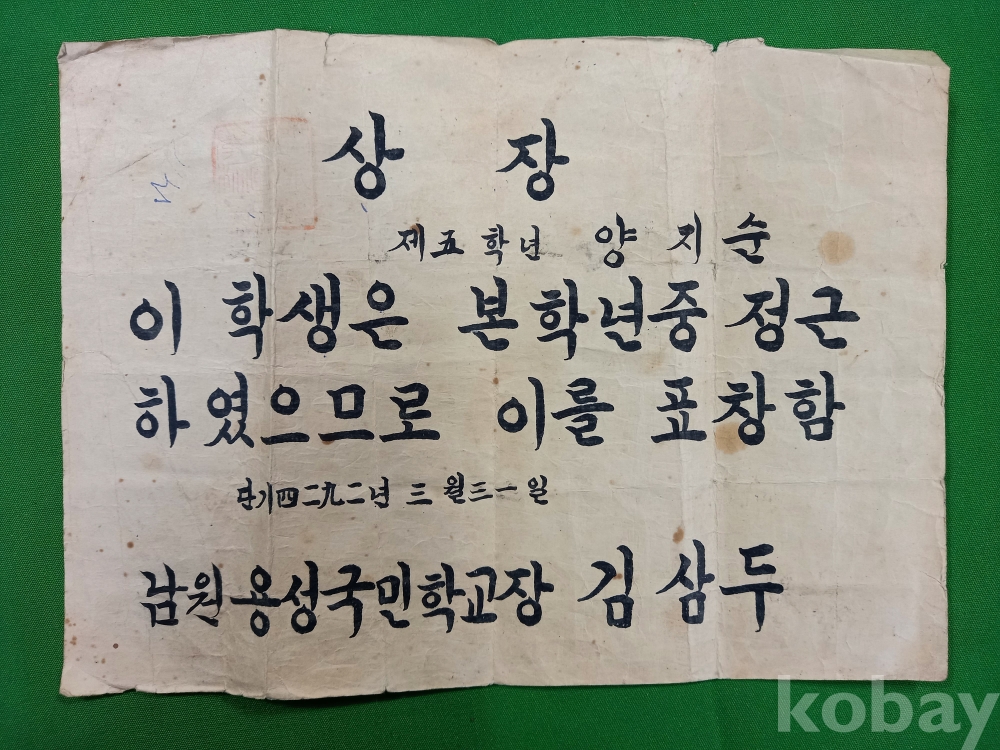 상 장
제五학년 양지순
이 학생은 본학년중 정근
하였으므로 이를 표창함
단기四二九二년 三월三一일
남원용성국민학교장 김삼두
kobay